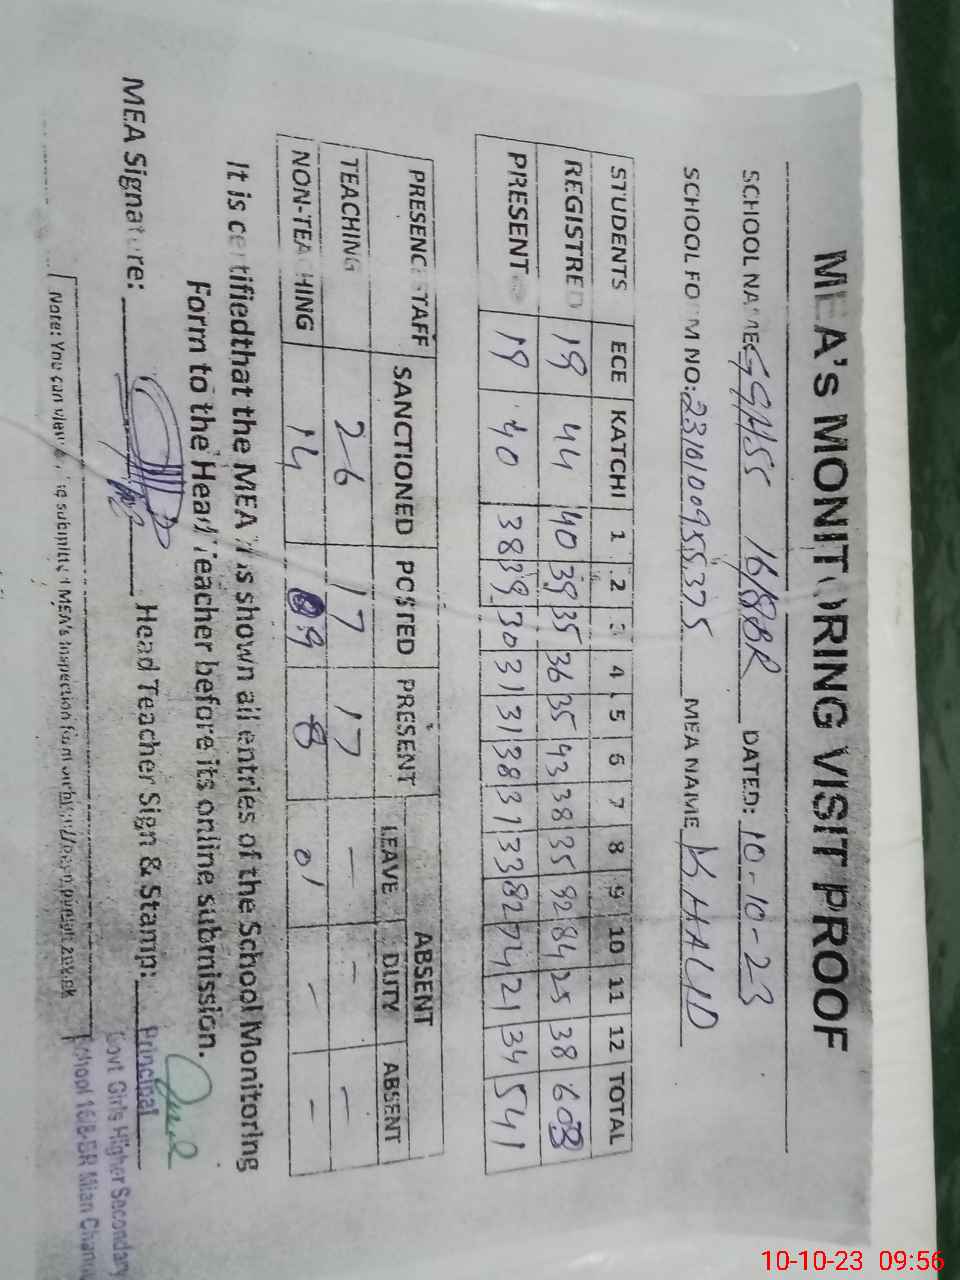 MEA's MONITORING VISIT PROOF
SCHOOL NAME: GGHSS 16/8BR DATED: 10-10-23
SCHOOL FORM NO: 23101009555375 MEA NAME KHALID
STUDENTS ECE KATCHI 1 2 3 4 5 6 7 8 9 10 11 12 TOTAL
REGISTRED 19 44 40 39 35 36 35 43 38 35 92 84 25 38 603
PRESENT 19 40 38 39 30 31 31 38 31 33 82 74 21 34 541
PRESENC STAFF SANCTIONED POSTED PRESENT ABSENT
LEAVE DUTY ABSENT
TEACHING 26 17 17 - - -
NON-TEACHING 14 09 8 01 - -
It is certifiedthat the MEA has shown all entries of the School Monitoring
Form to the Head Teacher before its online submission.
MEA Signature: Head Teacher Sign & Stamp:
Principal
Govt Girls Higher Secondary
School 16/8-BR Mian Channu
Note: You can view submitted MEA's inspection form
10-10-23 09:56